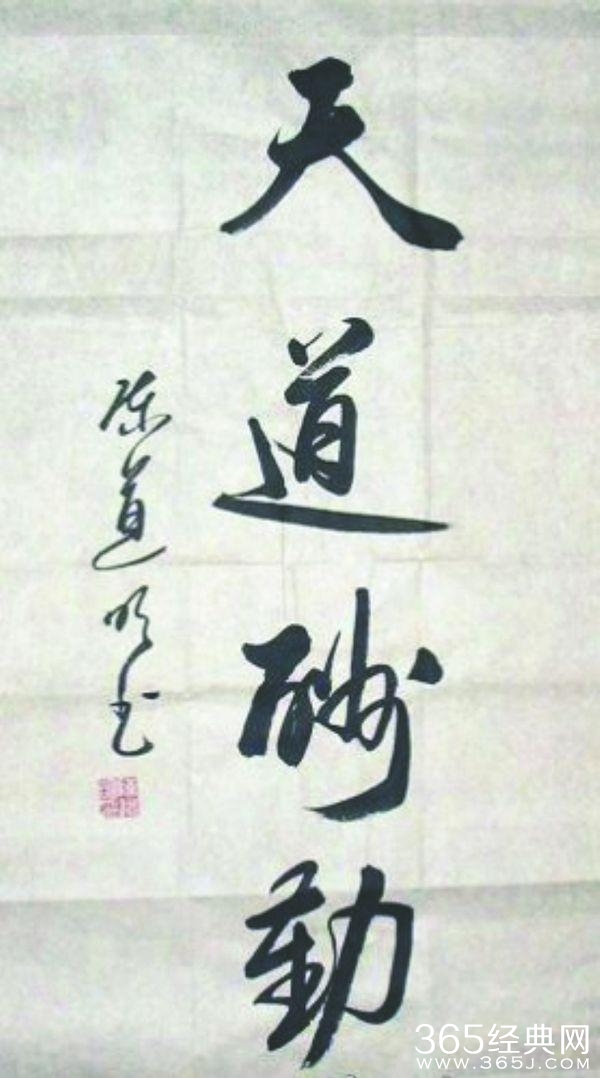 天道酬勤
陈道明书
365经典网
www.365J.com